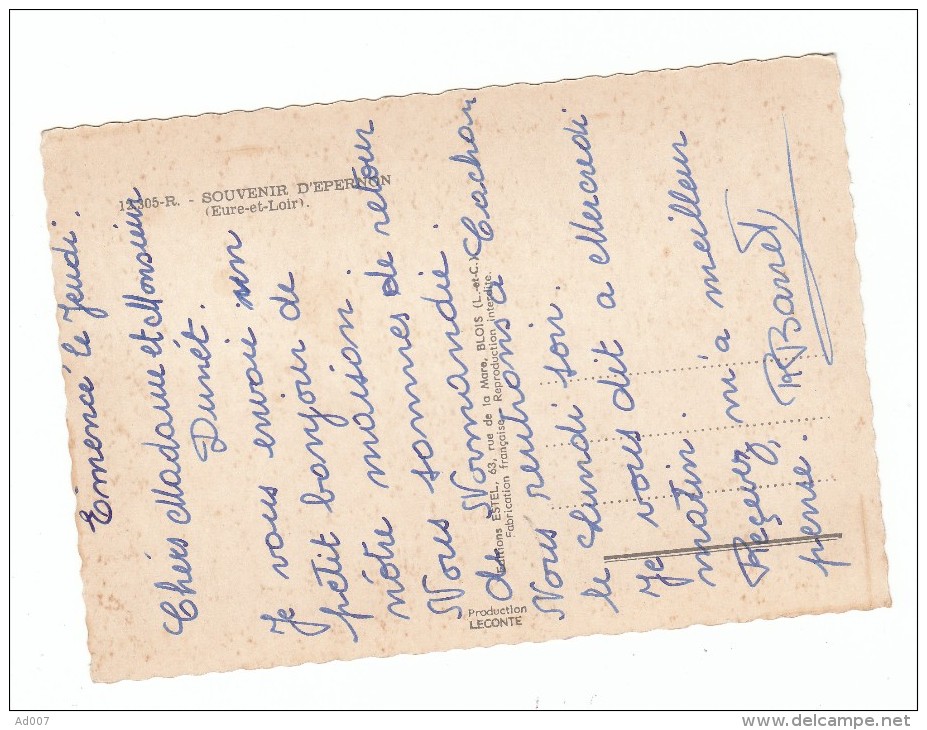 12.305-R. - SOUVENIR D'EPERNON
(Eure-et-Loir).
Editions ESTEL, 63, rue de la Mare, BLOIS (L.-et-C.)
Fabrication française Reproduction interdite.
Production
LECONTE
le Jeudi.
Chérs Madame et Monsieur
Dunét.
Je vous envoie un
petit bonjour de
nôtre maison.
Nous sommes de retour
de Normandie.
Nous rentrons a Cachan
le Lundi soir.
Je vous dit a Mercredi
matin.
Reçevez, m'a meilleur
pensé.
Ad007
delcampe.net